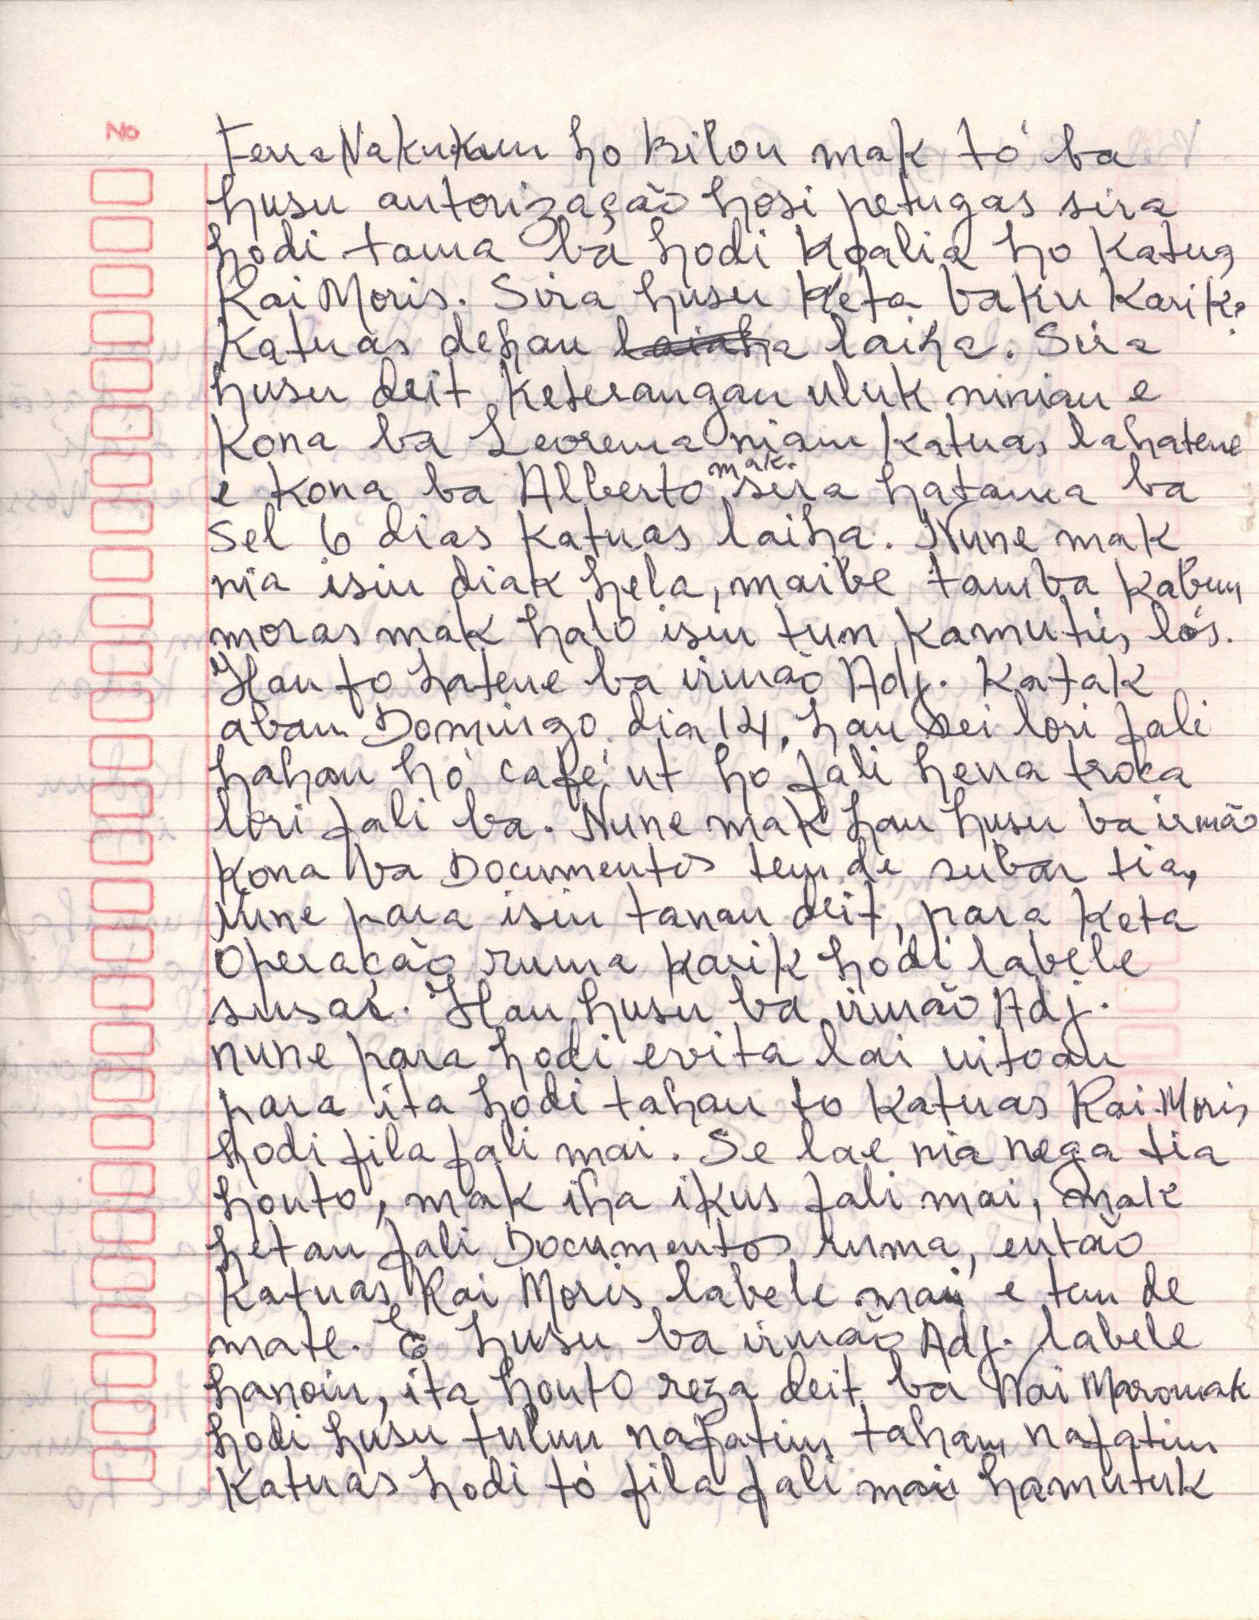 No
Terra Nakukun ho Bilou mak tó ba
husu autorização hosi petugas sira
hodi tama ba hodi koalia ho Katuas
Rai Moris. Sira husu keta baku karik?
Katuas dehan laiha. Sira
husu deit keterangan uluk ninian e
kona ba Leorema niam katuas lahatene
e kona ba Alberto mak sira hatama ba
sel 6 dias katuas laiha. Nune mak
nia isin diak hela, maibe tamba kabun
moras mak halo isin tun kamutis lós.
Hau fo hatene ba irmão Adj. katak
aban Domingo dia 14, hau sei lori fali
hahan hó café ut ho fali hena troca
lori fali ba. Nune mak hau husu ba irmão
kona ba Documentos tem de subar tia,
nune para isin tanan deit, para keta
Operação ruma karik hodi labele
susar. Hau husu ba irmão Adj.
nune para hodi evita lai uitoan
para ita hodi tahan to katuas Rai Moris
hodi fila fali mai. Se lae nia nega tia
houto, mak iha ikus fali mai, mak
hetan fali Documentos ruma, então
Katuas Rai Moris labele mai e ten de
mate. E husu ba irmão Adj. labele
hanoin, ita houto reza deit ba Nai Maromak
hodi husu tulun nafatin, tahan nafatin
katuas hodi tó fila fali mai hamutuk